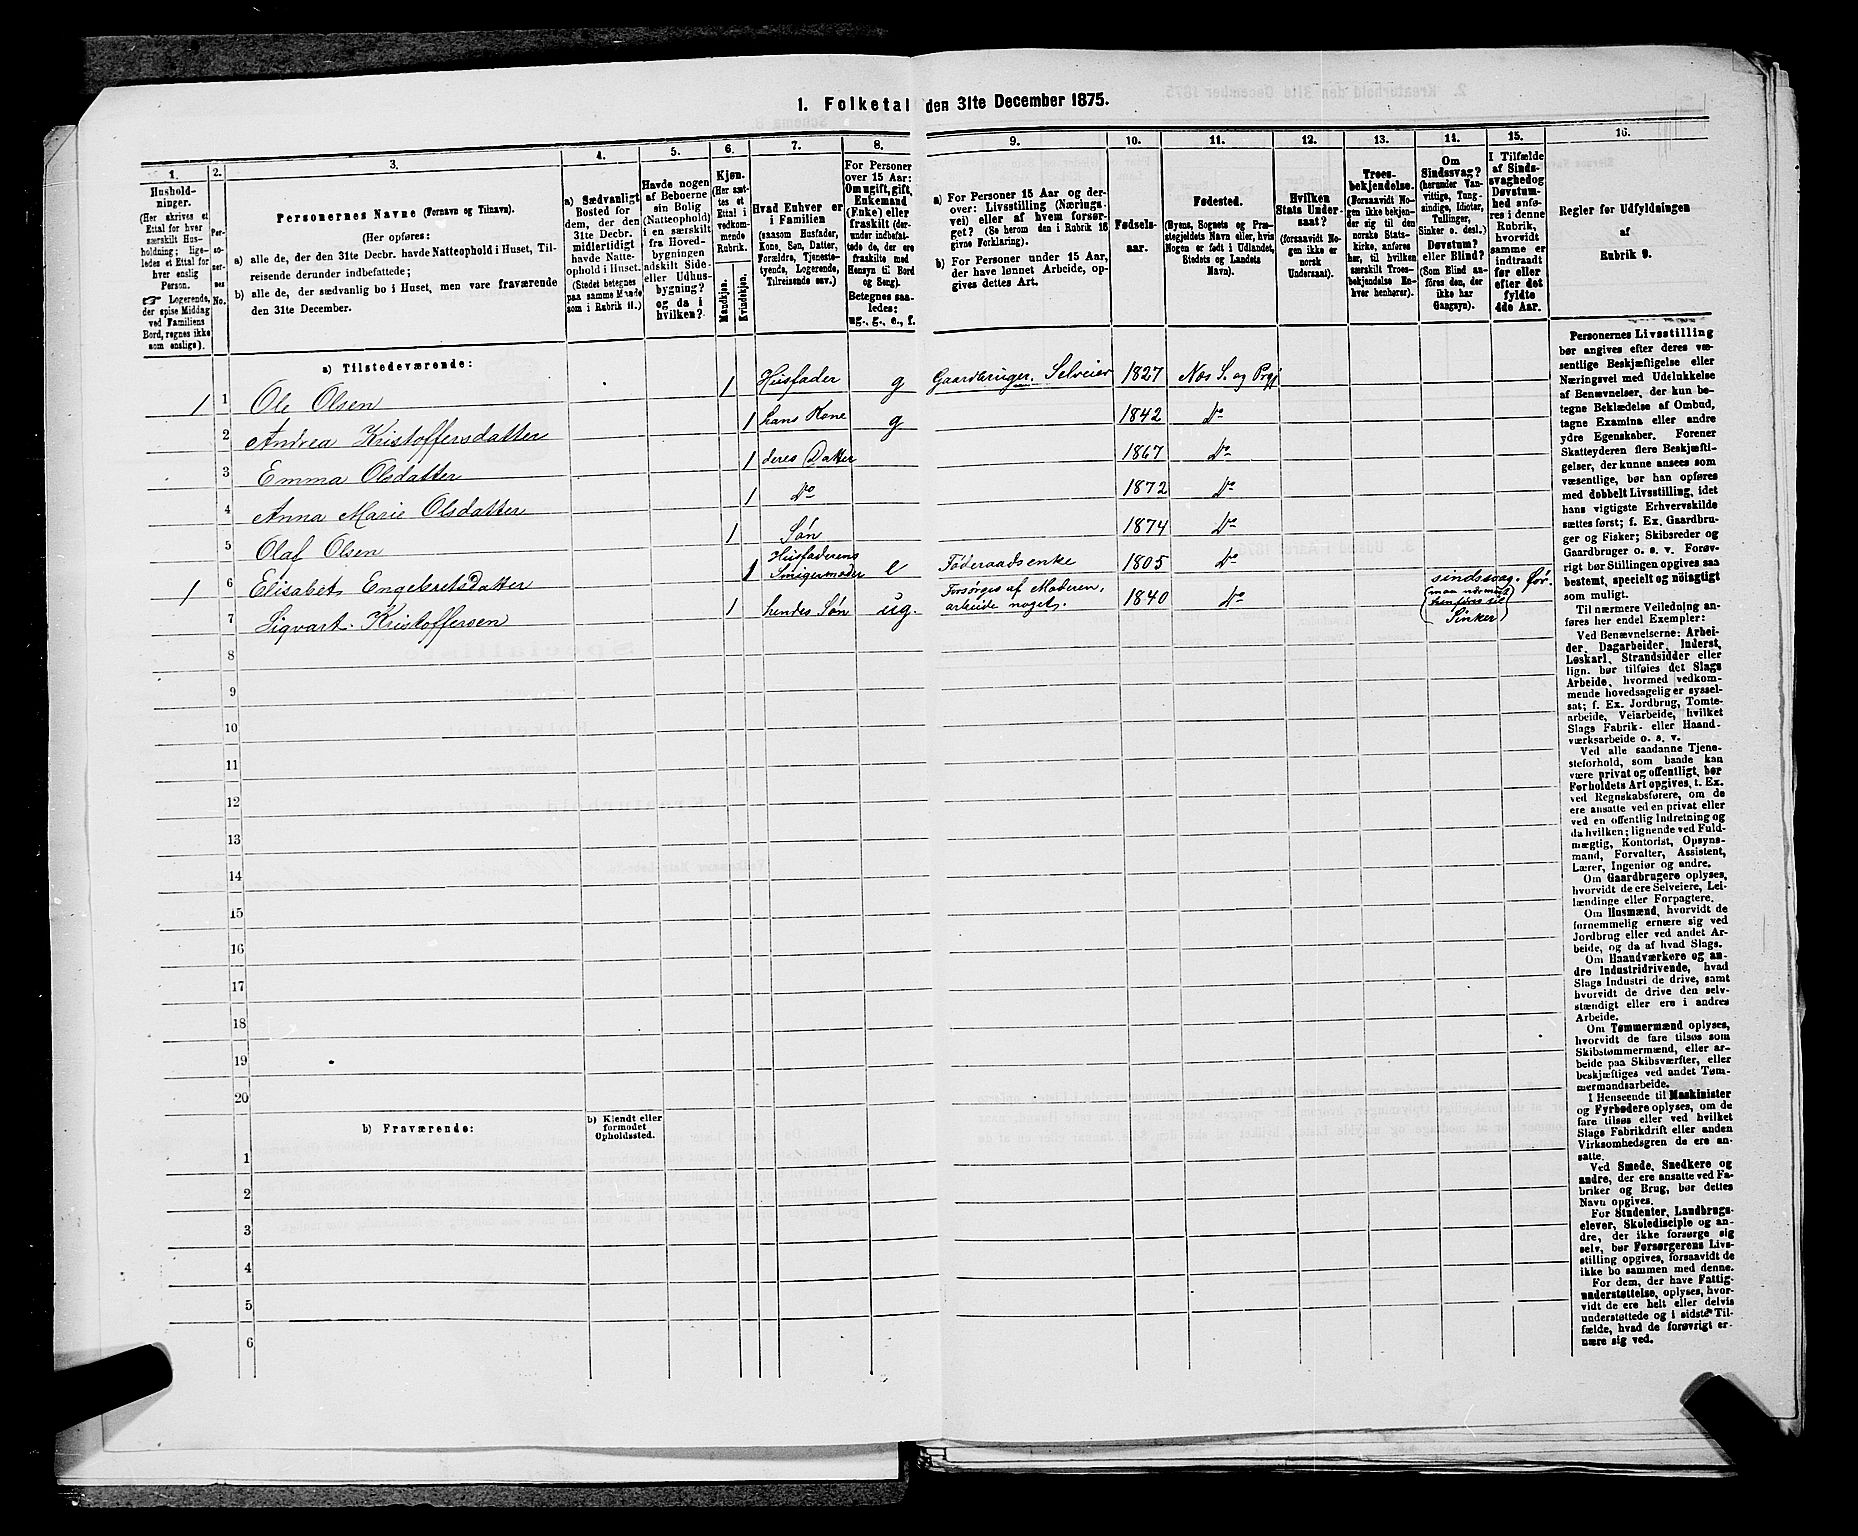 1. Folketal den 31te December 1875.
1. 2. 3. 4. 5. 6. 7. 8. 9. 10. 11. 12. 13. 14. 15. 16.
Husholdninger.
(Her skrives et Ettal for hver særskilt Husholdning; ligeledes et Ettal for hver enslig Person.
☞ Logerende, der spise Middag ved Familiens Bord, regnes ikke som enslige).
Personernes No.
Personernes Navne (Fornavn og Tilnavn).
(Her opføres:
a) alle de, der den 31te Decbr. havde Natteophold i Huset, Tilreisende derunder indbefattede;
b) alle de, der sædvanlig bo i Huset, men vare fraværende den 31te December.
a) Sædvanligt Bosted for dem, der den 31te Decbr. midlertidigt havde Natteophold i Huset. (Stedet betegnes paa samme Maade som i Rubrik 11.)
Havde nogen af Beboerne sin Bolig (Natteophold) i en særskilt fra Hovedbygningen adskilt Side- eller Udhusbygning? og da i hvilken?
Kjøn.
(Her sættes et Ettal i vedkommende Rubrik.
Mandkjøn.
Kvindekjøn.
Hvad Enhver er i Familien
(saasom Husfader, Kone, Søn, Datter, Forældre, Tjenestetyende, Logerende, Tilreisende osv.)
For Personer over 15 Aar: Om ugift, gift, Enkemand (Enke) eller fraskilt (derunder indbefattede de, der ere fraskilte med Hensyn til Bord og Seng).
Betegnes saaledes: ug., g., e., f.
a) For Personer 15 Aar og derover: Livsstilling (Næringsvei) eller af hvem forsørget? (Se herom den i Rubrik 16 givne Forklaring).
b) For Personer under 15 Aar, der have lønnet Arbeide, opgives dettes Art.
Fødselsaar.
Fødested.
(Byens, Sognets og Præstegjeldets Navn eller, hvis Nogen er født i Udlandet, Stedets og Landets Navn).
Hvilken Stats Undersaat?
(forsaavidt Nogen ikke er norsk Undersaat).
Troesbekjendelse.
(Forsaavidt Nogen ikke bekjender sig til den norske Statskirke, anføres her, til hvilken særskilt Troesbekjendelse Enhver henhører).
Om Sindssvag? (herunder Vanvittige, Tungsindige, Idioter, Tullinger, Sinker o. desl.) Døvstum? eller Blind? (Som Blind anføres den, der ikke har Gangsyn).
I Tilfælde af Sindssvaghed og Døvstumhed anføres i denne Rubrik, hvorvidt samme er indtraadt før eller efter det fyldte 4de Aar.
Regler for Udfyldningen
af
Rubrik 9.
a) Tilstedeværende:
1 1 Ole Olsen 1 Husfader g Gaardbruger. Selveier 1827 Næs S. og Prgj
2 Andrea Kristoffersdatter 1 hans Kone g 1842 Do
3 Emma Olsdatter 1 deres Datter 1867 Do
4 Anna Marie Olsdatter 1 Do 1872 Do
5 Olaf Olsen 1 Søn 1874 Do
1 6 Elisabet Engebretsdatter 1 Husfaderens Svigermoder e Føderaadsenke 1805 Do
7 Sigvart Kristoffersen 1 hendes Søn ug. Forsørges af Moderen, arbeide noget. 1840 Do sindssvag. (maa nærmest henføres til Sinker) Før.
8
9
10
11
12
13
14
15
16
17
18
19
20
b) Fraværende:
b) Kjendt eller formodet Opholdssted.
1
2
3
4
5
6
Personernes Livsstilling
bør angives efter deres væ-
sentlige Beskjæftigelse eller
Næringsvei med Udelukkelse
af Benævnelser, der kun be-
tegne Beklædelse af Ombud,
tagne Examina eller andre
ydre Egenskaber. Forener
Skatteyderen flere Beskjæfti-
gelser, der kunne ansees som
væsentlige, bør han opføres
med dobbelt Livsstilling, idet
hans vigtigste Erhvervskilde
sættes først; f. Ex. Gaardbru-
ger og Fisker; Skibsreder og
Gaardbruger o. s. v. Forøv-
rigt bør Stillingen opgives saa
bestemt, specielt og nøiagtigt
som muligt.
Til nærmere Veiledning an-
føres her endel Exempler:
Ved Benævnelserne: Arbei-
der, Dagarbeider, Inderst,
Løskarl, Strandsidder eller
lign. bør tilføies det Slags
Arbeide, hvormed vedkom-
mende hovedsagelig er syssel-
sat; f. Ex. Jordbrug, Tomte-
arbeide, Veiarbeide, hvilket
Slags Fabrik- eller Haand-
værksarbeide o. s. v.
Ved alle saadanne Tjene-
steforhold, som baade kan
være privat og offentligt, bør
Forholdets Art opgives, t. Ex.
ved Regnskabsførere, om de
ere ansatte ved en privat eller
ved en offentlig Indretning og
da hvilken; lignende ved Fuld-
mægtig, Kontorist, Opsyns-
mand, Forvalter, Assistent,
Lærer, Ingeniør og andre.
Om Gaardbrugere oplyses,
hvorvidt de ere Selveiere, Lei-
lændinge eller Forpagtere.
Om Husmænd, hvorvidt de
fornemmelig ernære sig ved
Jordbrug eller ved andet Ar-
beide, og da af hvad Slags.
Om Haandværkere og an-
dre Industridrivende, hvad
Slags Industri de drive, samt
hvorvidt de drive den selv-
stændigt eller ere i andres
Arbeide.
Om Tømmermænd oplyses,
hvorvidt de fare tilsøs som
Skibstømmermænd, eller ar-
beide paa Skibsværfter, eller
beskjæftiges ved andet Tøm-
mermandsarbeide.
I Henseende til Maskinister
og Fyrbødere oplyses, om de
fare tilsøs eller ved hvilket
Slags Fabrikdrift eller anden
Virksomhedsgren de ere an-
satte.
Ved Smede, Snedkere og
andre, der ere ansatte ved Fa-
briker og Brug, bør dettes
Navn opgives.
For Studenter, Landbrugs-
elever, Skoledisciple og an-
dre, der ikke forsørge sig
selv, bør Forsørgerens Livs-
stilling opgives, forsaavidt de
ikke bo sammen med denne.
For dem, der have Fattig-
understøttelse, oplyses, hvor-
vidt de ere helt eller delvis
understøttede og i sidste Til-
fælde, hvad de forøvrigt er-
nære sig ved.